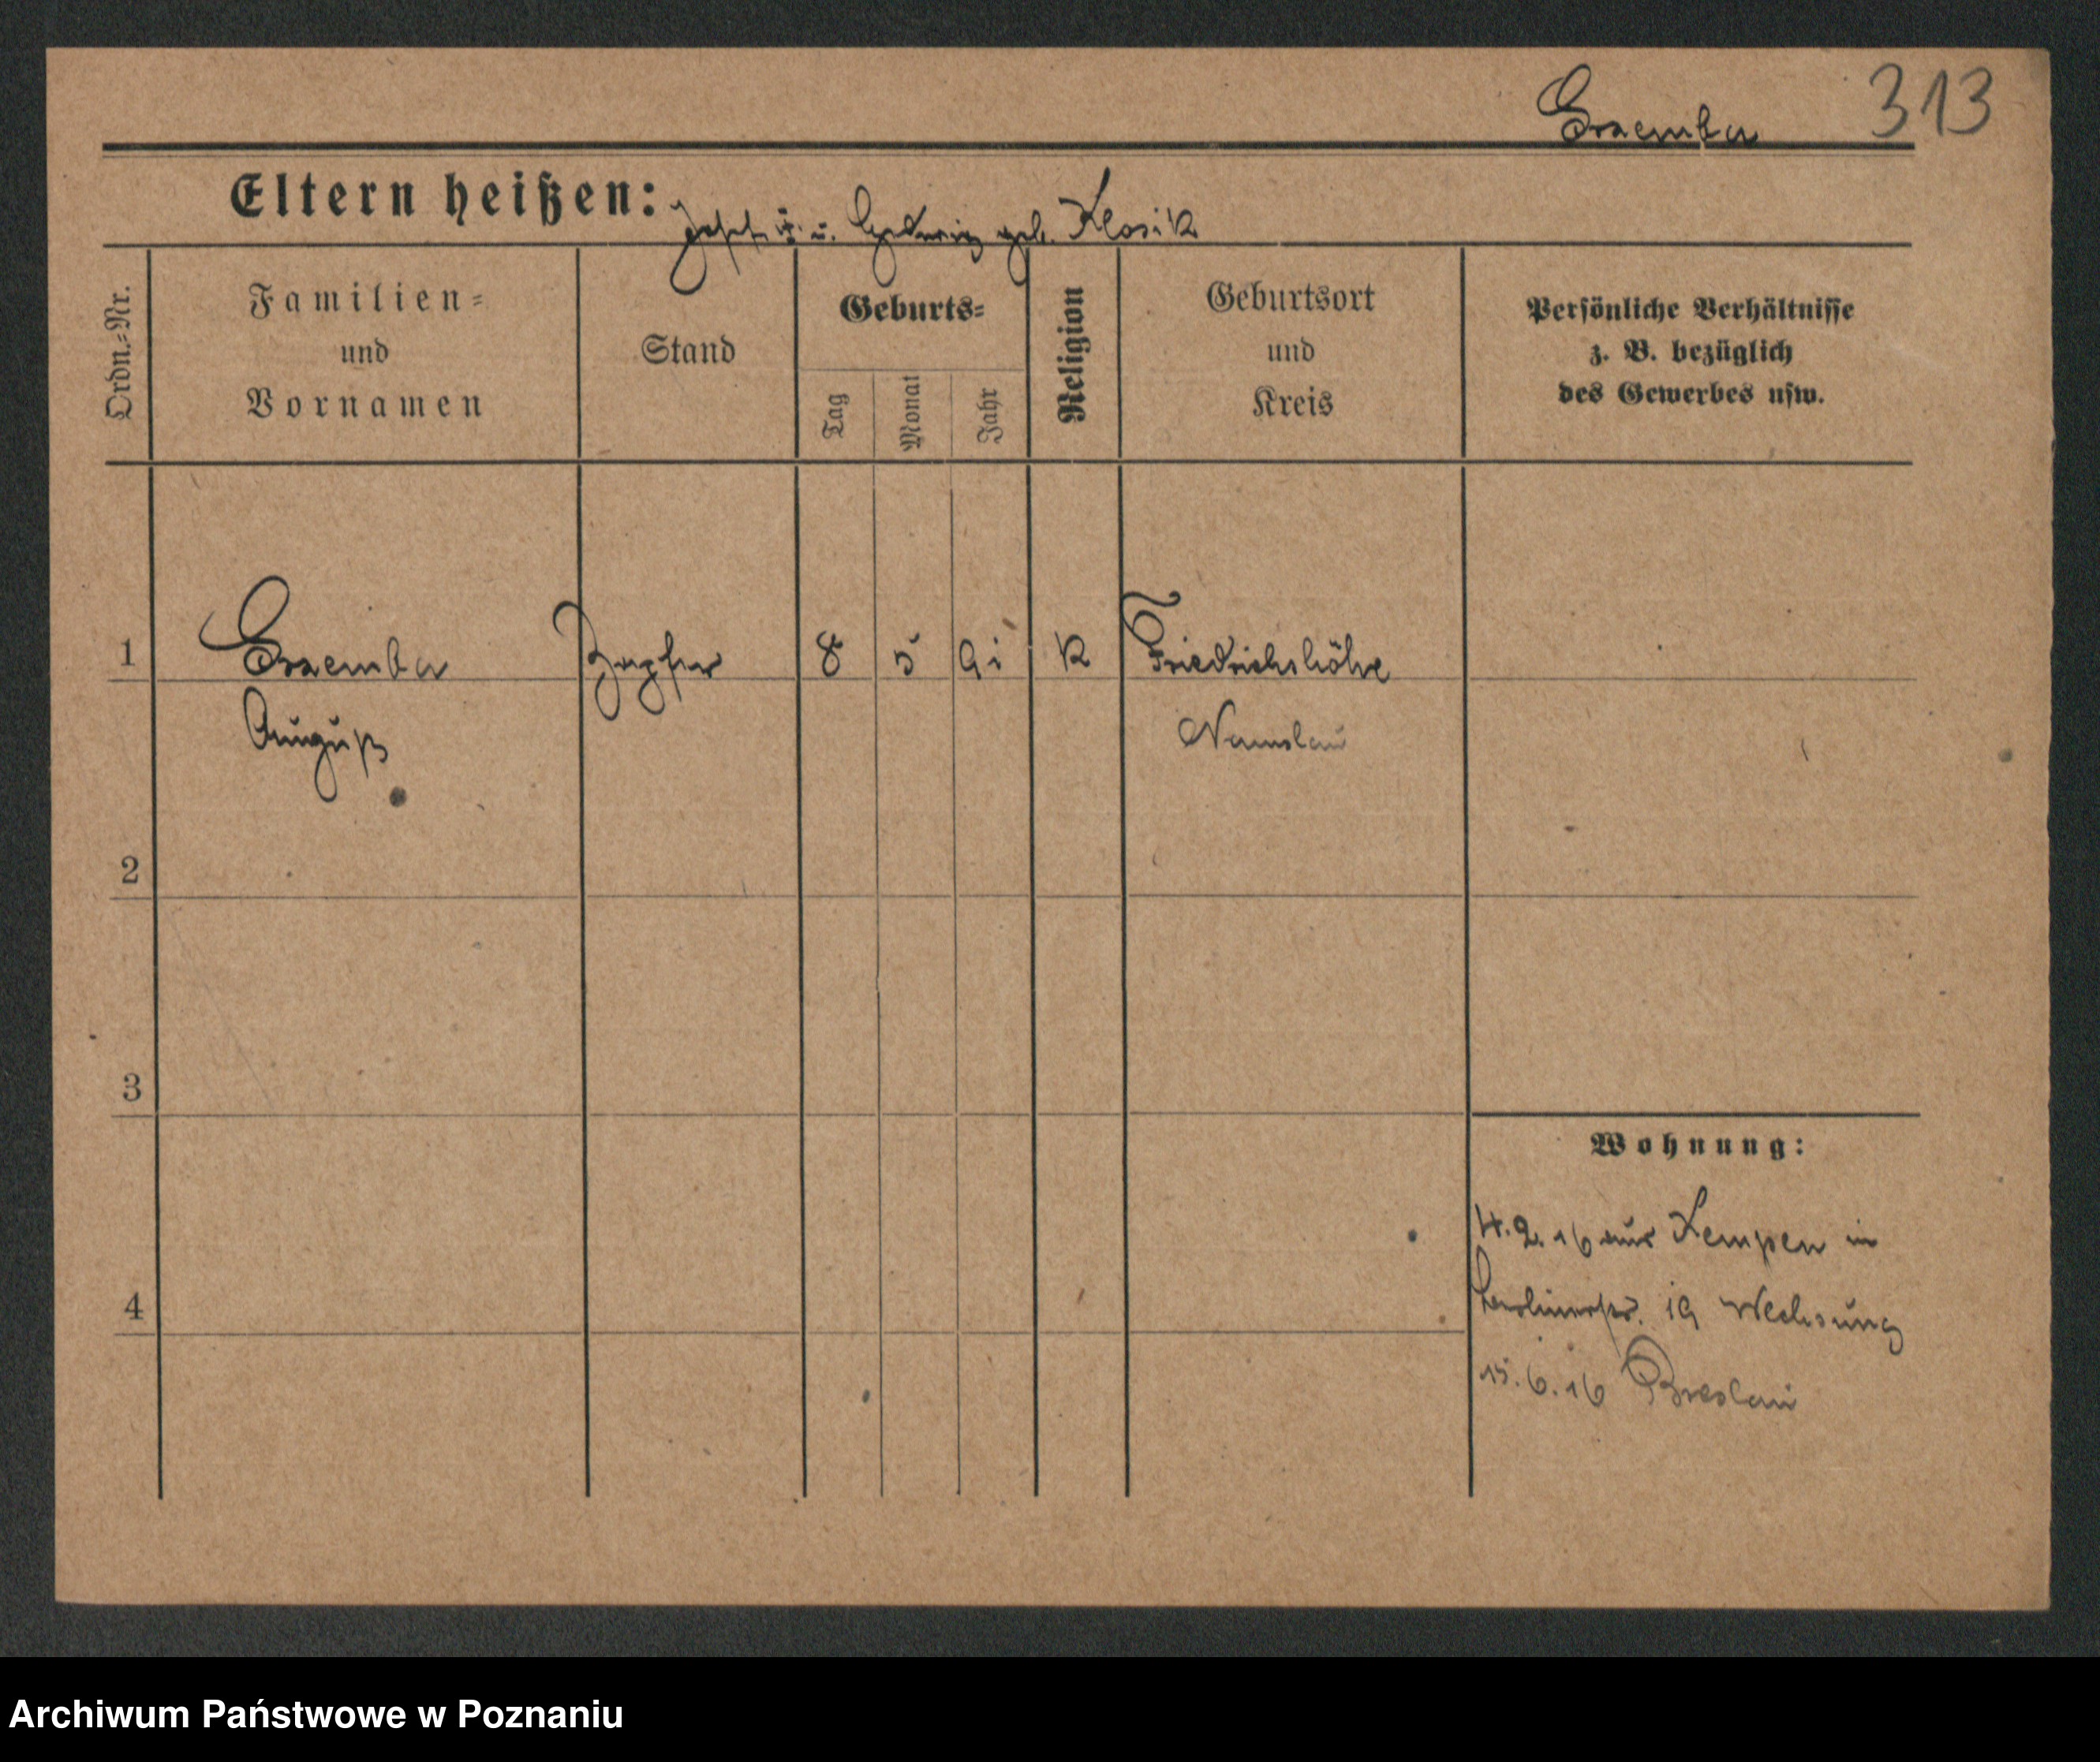 313
Eltern heißen: Josef u. Hedwig geb. Klosik
Ordn.-Nr.
Familien-
und
Vornamen
Stand
Geburts-
Tag
Monat
Jahr
Religion
Geburtsort
und
Kreis
Persönliche Verhältnisse
z. B. bezüglich
des Gewerbes usw.
1 8 5 91 K Friedrichshöhe
August Namslau
2
3
Wohnung:
4.2.16 aus Kempen in
19 Wechsung
4
15.6.16 Breslau
Archiwum Państwowe w Poznaniu